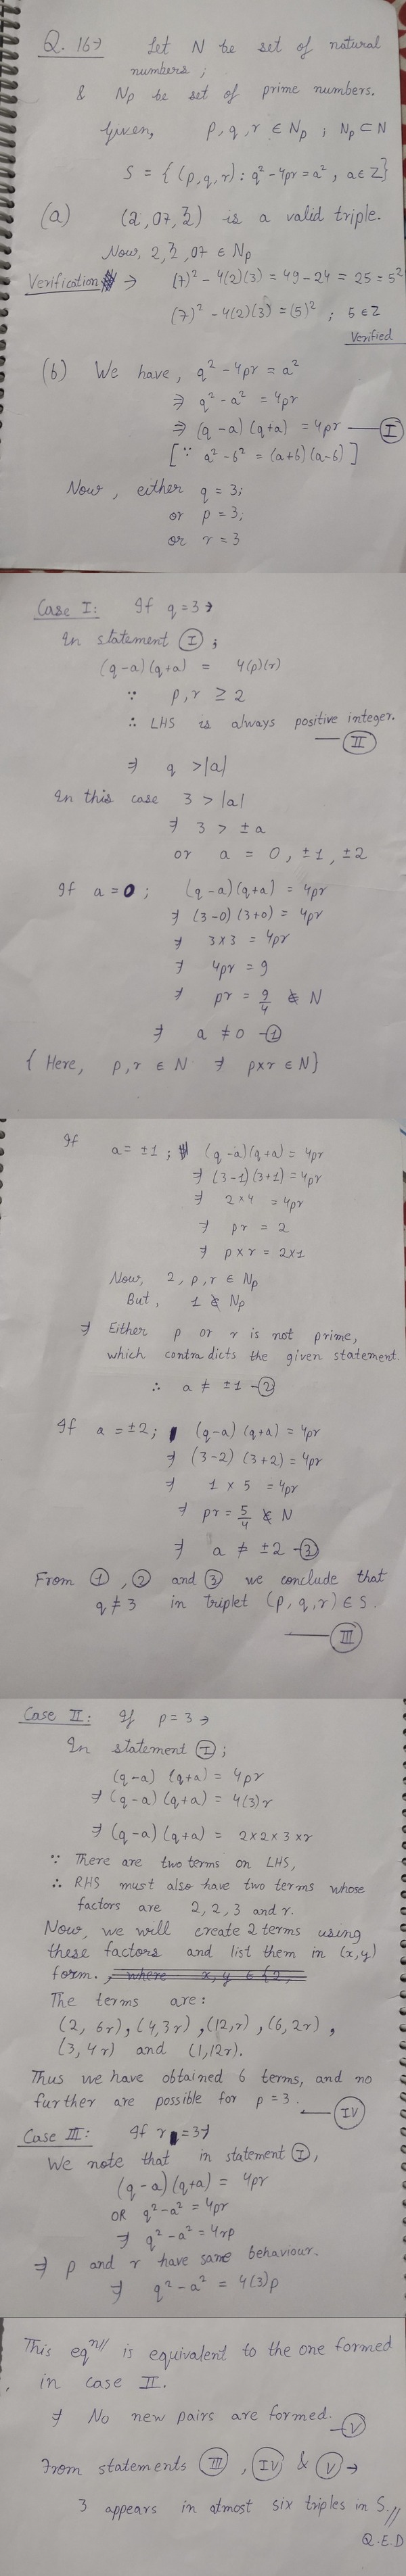 Q. 16→ Let N be set of natural
numbers ;
& Np be set of prime numbers.
Given, p, q, r ∈ Np ; Np ⊂ N
S = { (p, q, r) : q² - 4pr = a² , a ∈ Z}
(a) (2, 07, 3) is a valid triple.
Now, 2, 3, 07 ∈ Np
Verification → (7)² - 4(2)(3) = 49 - 24 = 25 = 5²
(7)² - 4(2)(3) = (5)² ; 5 ∈ Z
Verified
(b) We have, q² - 4pr = a²
⇒ q² - a² = 4pr
⇒ (q-a) (q+a) = 4pr — I
[∵ a² - b² = (a+b) (a-b) ]
Now, either q = 3;
or p = 3,
or r = 3
Case I: If q = 3 →
In statement I ;
(q-a) (q+a) = 4(p)(r)
∵ p, r ≥ 2
∴ LHS is always positive integer.
— II
⇒ q > |a|
In this case 3 > |a|
⇒ 3 > ± a
or a = 0, ±1, ±2
If a = 0 ; (q-a) (q+a) = 4pr
⇒ (3-0) (3+0) = 4pr
⇒ 3×3 = 4pr
⇒ 4pr = 9
⇒ pr = 9/4 ∉ N
⇒ a ≠ 0 - 1
{ Here, p, r ∈ N ⇒ p×r ∈ N}
If a = ±1 ; (q-a) (q+a) = 4pr
⇒ (3-1) (3+1) = 4pr
⇒ 2×4 = 4pr
⇒ pr = 2
⇒ p×r = 2×1
Now, 2, p, r ∈ Np
But, 1 ∉ Np
⇒ Either p or r is not prime,
which contradicts the given statement.
∴ a ≠ ±1 - 2
If a = ±2; (q-a) (q+a) = 4pr
⇒ (3-2) (3+2) = 4pr
⇒ 1 × 5 = 4pr
⇒ pr = 5/4 ∉ N
⇒ a ≠ ±2 - 3
From 1, 2 and 3 we conclude that
q ≠ 3 in triplet (p, q, r) ∈ S.
— III
Case II: If p = 3 →
In statement I ;
(q-a) (q+a) = 4pr
⇒ (q-a) (q+a) = 4(3)r
⇒ (q-a) (q+a) = 2×2×3×r
∵ There are two terms on LHS,
∴ RHS must also have two terms whose
factors are 2, 2, 3 and r.
Now, we will create 2 terms using
these factors and list them in (x, y)
form. , where x, y ∈ {2,
The terms are:
(2, 6r), (4, 3r), (12, r), (6, 2r),
(3, 4r) and (1, 12r).
Thus we have obtained 6 terms, and no
further are possible for p = 3.
— IV
Case III: If r = 3 →
We note that in statement I,
(q-a) (q+a) = 4pr
OR q² - a² = 4pr
⇒ q² - a² = 4rp
⇒ p and r have same behaviour.
⇒ q² - a² = 4(3)p
This eqⁿ// is equivalent to the one formed
in case II.
⇒ No new pairs are formed. — V
From statements III, IV & V →
3 appears in atmost six triples in S.//
Q.E.D